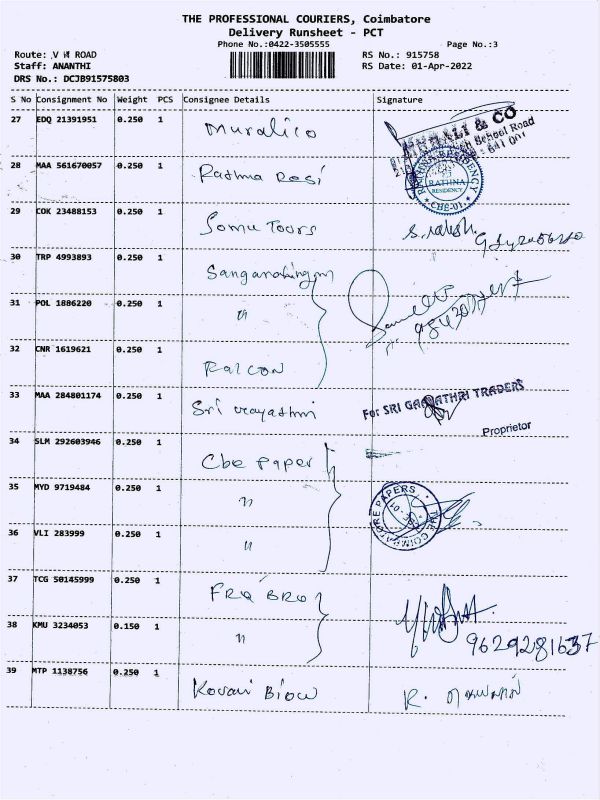 THE PROFESSIONAL COURIERS, Coimbatore
Delivery Runsheet - PCT
Phone No.:0422-3505555
Page No.:3
Route: V H ROAD
RS No.: 915758
Staff: ANANTHI
RS Date: 01-Apr-2022
DRS No.: DCJB91575803
S No Consignment No Weight PCS Consignee Details Signature
27 EDQ 21391951 0.250 1 Muralico
& CO
School Road
641 001
28 MAA 561670057 0.250 1 Rathna Resi
RATHNA
RESIDENCY
CBE-01
29 COK 23488153 0.250 1 Somu Tours
30 TRP 4993893 0.250 1
31 POL 1886220 0.250 1 "
32 CNR 1619621 0.250 1 Ralcon
33 MAA 284801174 0.250 1 Sri
For SRI GAYATHRI TRADERS
Proprietor
34 SLM 292603946 0.250 1 Cbe Paper
35 MYD 9719484 0.250 1 "
THE COIMBATORE PAPERS
36 VLI 283999 0.250 1 "
37 TCG 50145999 0.250 1 Fra Bro
38 KMU 3234053 0.150 1 "
9629281637
39 MTP 1138756 0.250 1 Kovai
R.